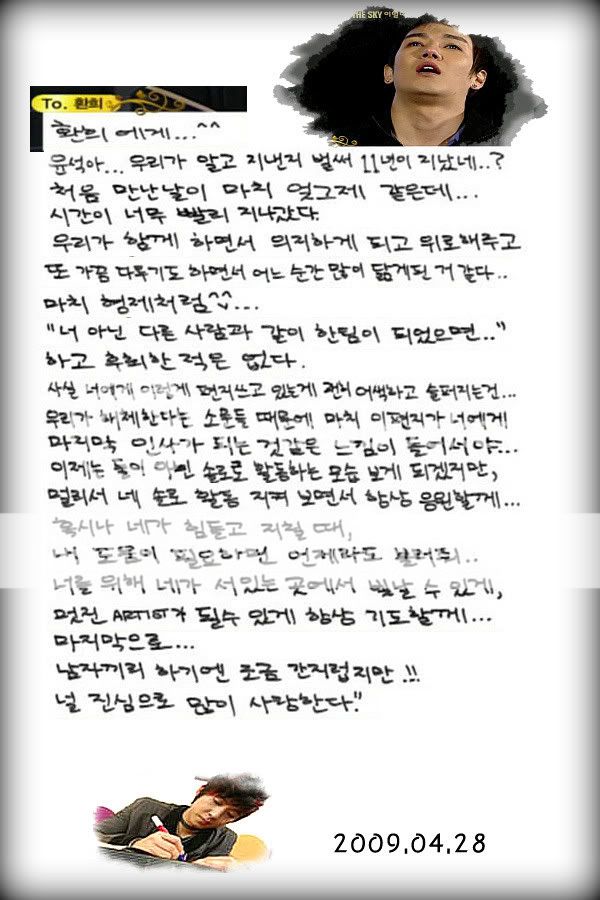 THE SKY
To. 환희
환희 에게...^^
윤석아... 우리가 알고 지낸지 벌써 11년이 지났네..?
처음 만난날이 마치 엊그제 같은데...
시간이 너무 빨리 지나갔다.
우리가 함께 하면서 의지하게 되고 위로해주고
또 가끔 다투기도 하면서 어느 순간 많이 닮게된 거 같다..
마치 형제처럼^^...
"너 아닌 다른 사람과 같이 한팀이 되었으면.."
하고 후회한 적은 없다.
사실 너에게 이렇게 편지쓰고 있는게 괜히 어색하고 슬퍼지는건...
우리가 해체한다는 소문들 때문에 마치 이편지가 너에게
마지막 인사가 되는 것같은 느낌이 들어서야...
이제는 둘이 아닌 솔로로 활동하는 모습 보게 되겠지만,
멀리서 네 솔로 활동 지켜 보면서 항상 응원할게...
혹시나 네가 힘들고 지칠 때,
내 도움이 필요하면 언제라도 불러줘..
너를 위해 네가 서있는 곳에서 빛날 수 있게,
멋진 ARTIST가 될수 있게 항상 기도할께...
마지막으로...
남자끼리 하기엔 조금 간지럽지만 !!!
널 진심으로 많이 사랑한다."
2009.04.28